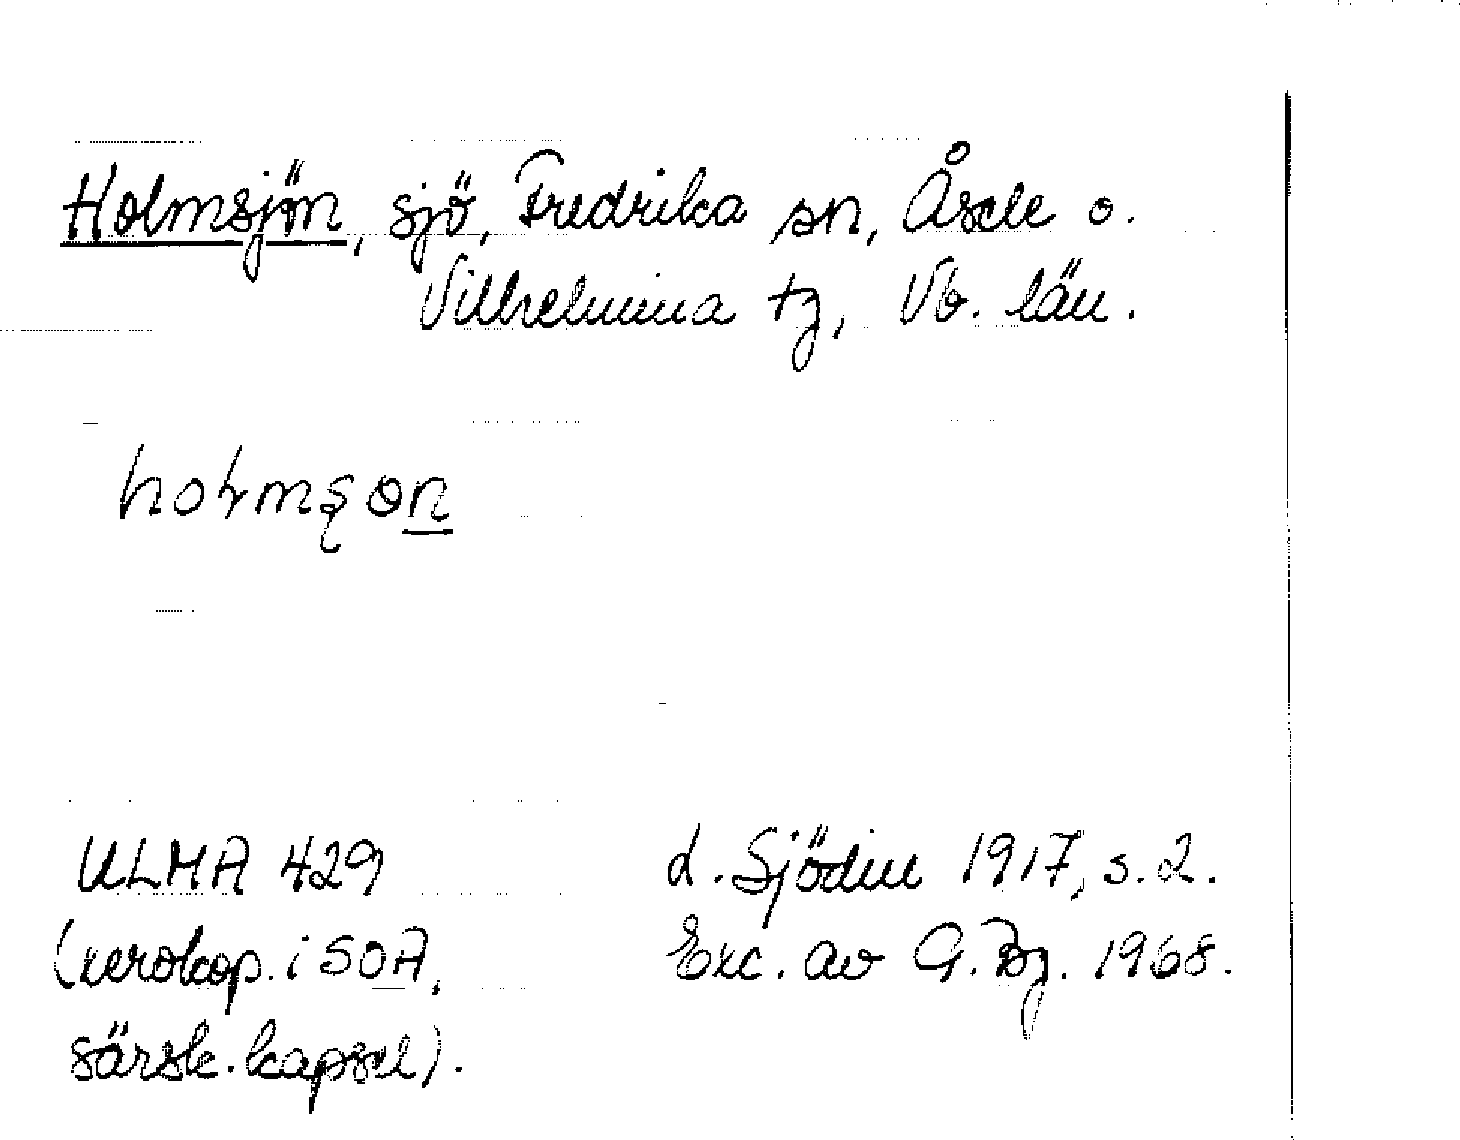 Holmsjön, sjö, Fredrika sn, Åsele o.
Vilhelmina tg, Vb. län.
ULMA 429
(xerokop. i SOA,
särsk. kapsel).
d. Sjödin 1917, s. 2.
Exc. av G. Bg. 1968.